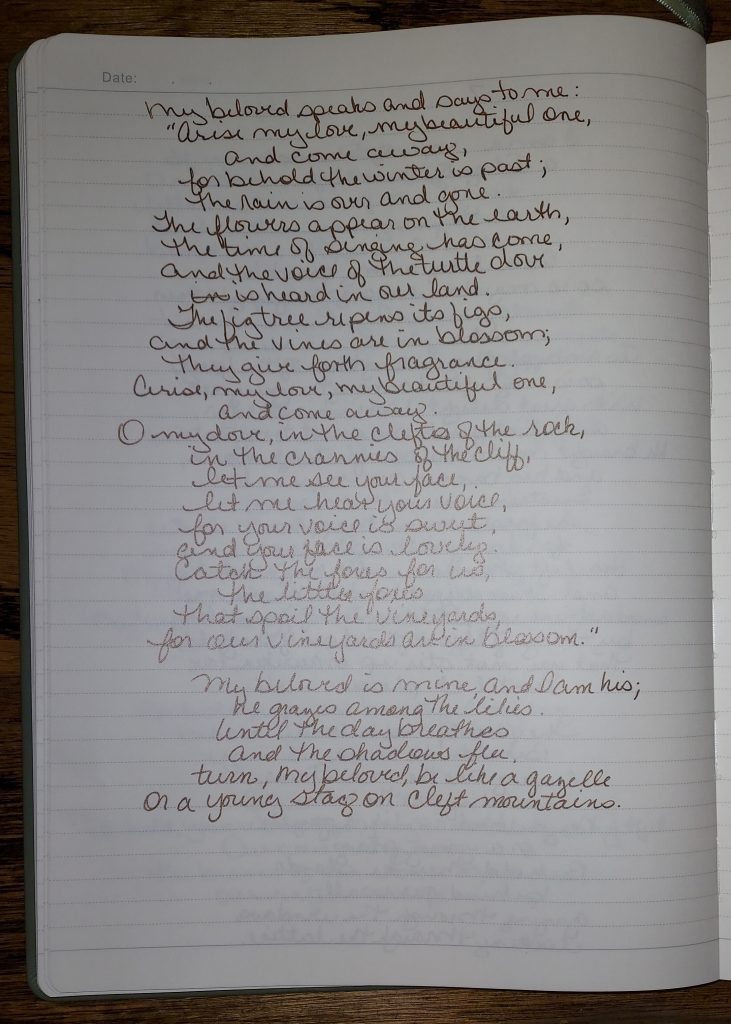 Date:
My beloved speaks and says to me:
"Arise my love, my beautiful one,
and come away,
for behold the winter is past;
the rain is over and gone.
The flowers appear on the earth,
the time of singing has come,
and the voice of the turtle dove
in is heard in our land.
The fig tree ripens its figs,
and the vines are in blossom;
they give forth fragrance.
Arise, my love, my beautiful one,
and come away.
O my dove, in the clefts of the rock,
in the crannies of the cliff,
let me see your face,
let me hear your voice,
for your voice is sweet,
and your face is lovely.
Catch the foxes for us,
the little foxes
that spoil the vineyards,
for our vineyards are in blossom."
My beloved is mine, and I am his;
he grazes among the lilies.
Until the day breathes
and the shadows flee,
turn, my beloved, be like a gazelle
or a young stag on cleft mountains.